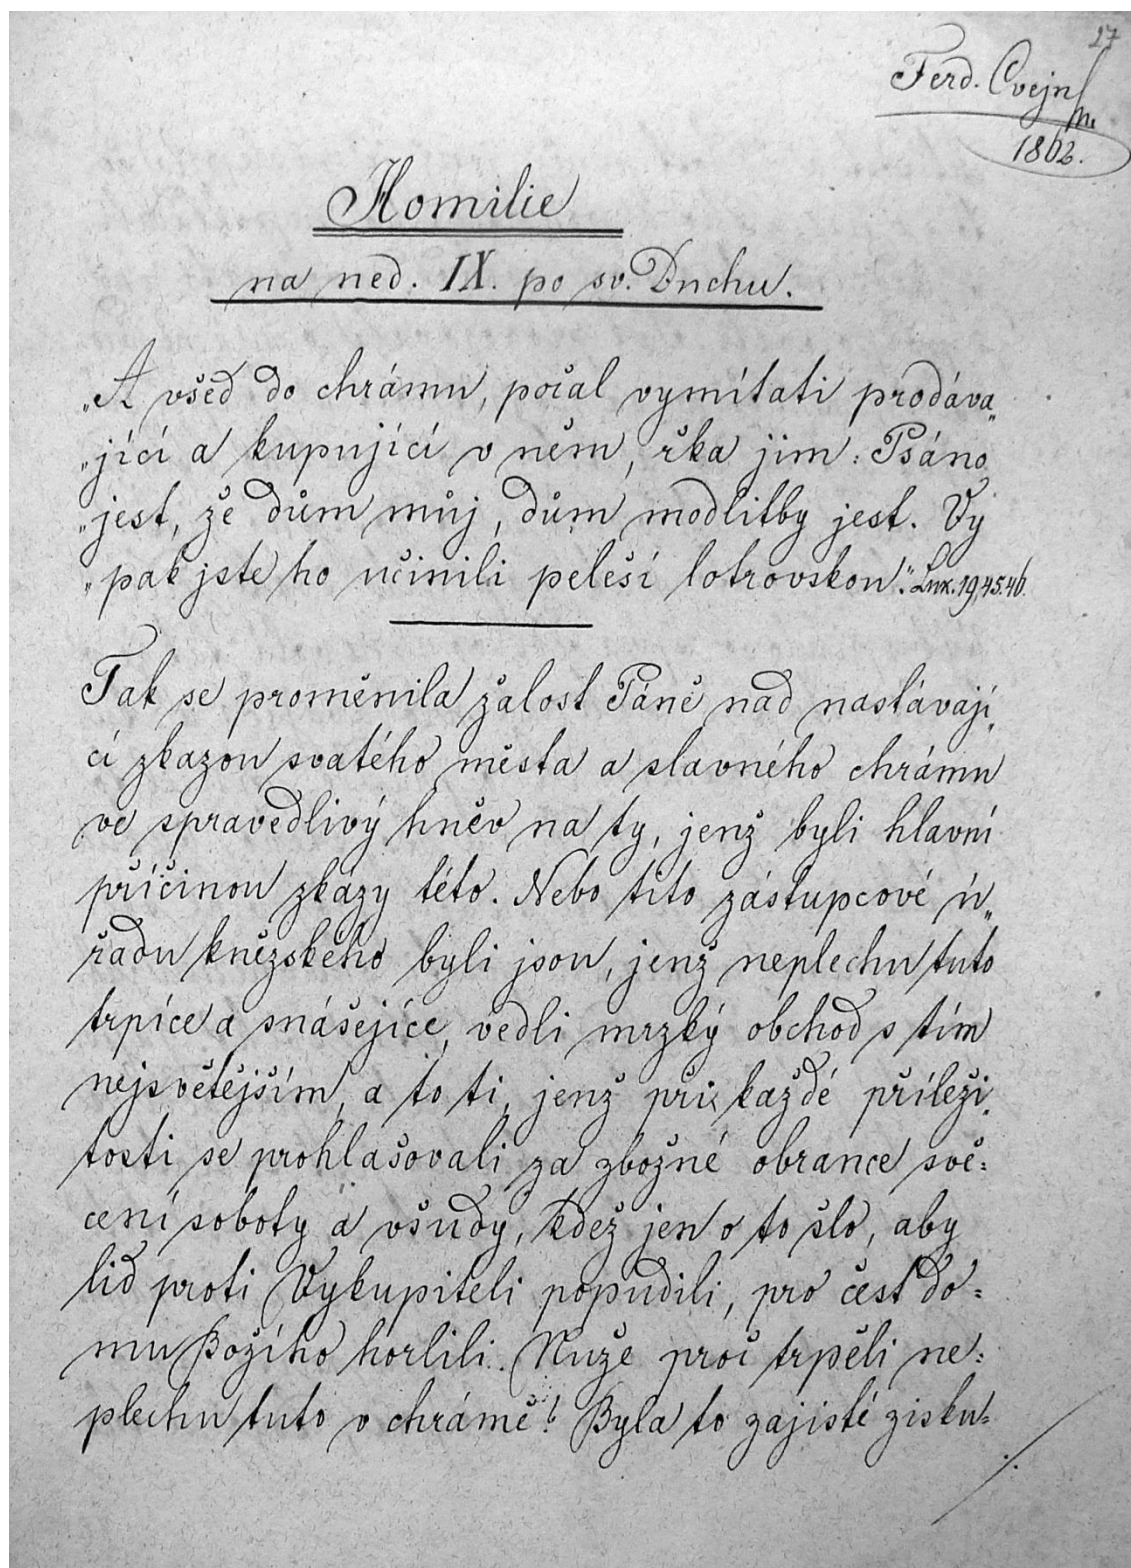 27
Ferd. Cvejn
1862.
Homilie
na ned. IX. po sv. Duchu.
„A všed do chrámu, počal vymítati prodáva„
„jící a kupující v něm, řka jim: Psáno
„jest, že dům můj, dům modlitby jest. Vy
„pak jste ho učinili peleší lotrovskou“. Luk. 19,45.46.
Tak se proměnila žalost Páně nad nastávají„
cí zkazou svatého města a slavného chrámu
ve spravedlivý hněv na ty, jenž byli hlavní
příčinou zkázy této. Nebo tito zástupcové ú„
řadu kněžského byli jsou, jenž neplechu tuto
trpíce a snášejíce, vedli mrzký obchod s tím
nejsvětějším, a to ti, jenž při každé příleži„
tosti se prohlašovali za zbožné obrance svě=
cení soboty a všudy, kdež jen o to šlo, aby
lid proti Vykupiteli popudili, pro čest do=
mu Božího horlili. Nuže proč trpěli ne=
plechu tuto v chrámě? Byla to zajisté zisku=
./.